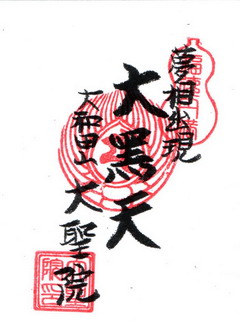 夢相出現
大黑天
大和田山
大聖院